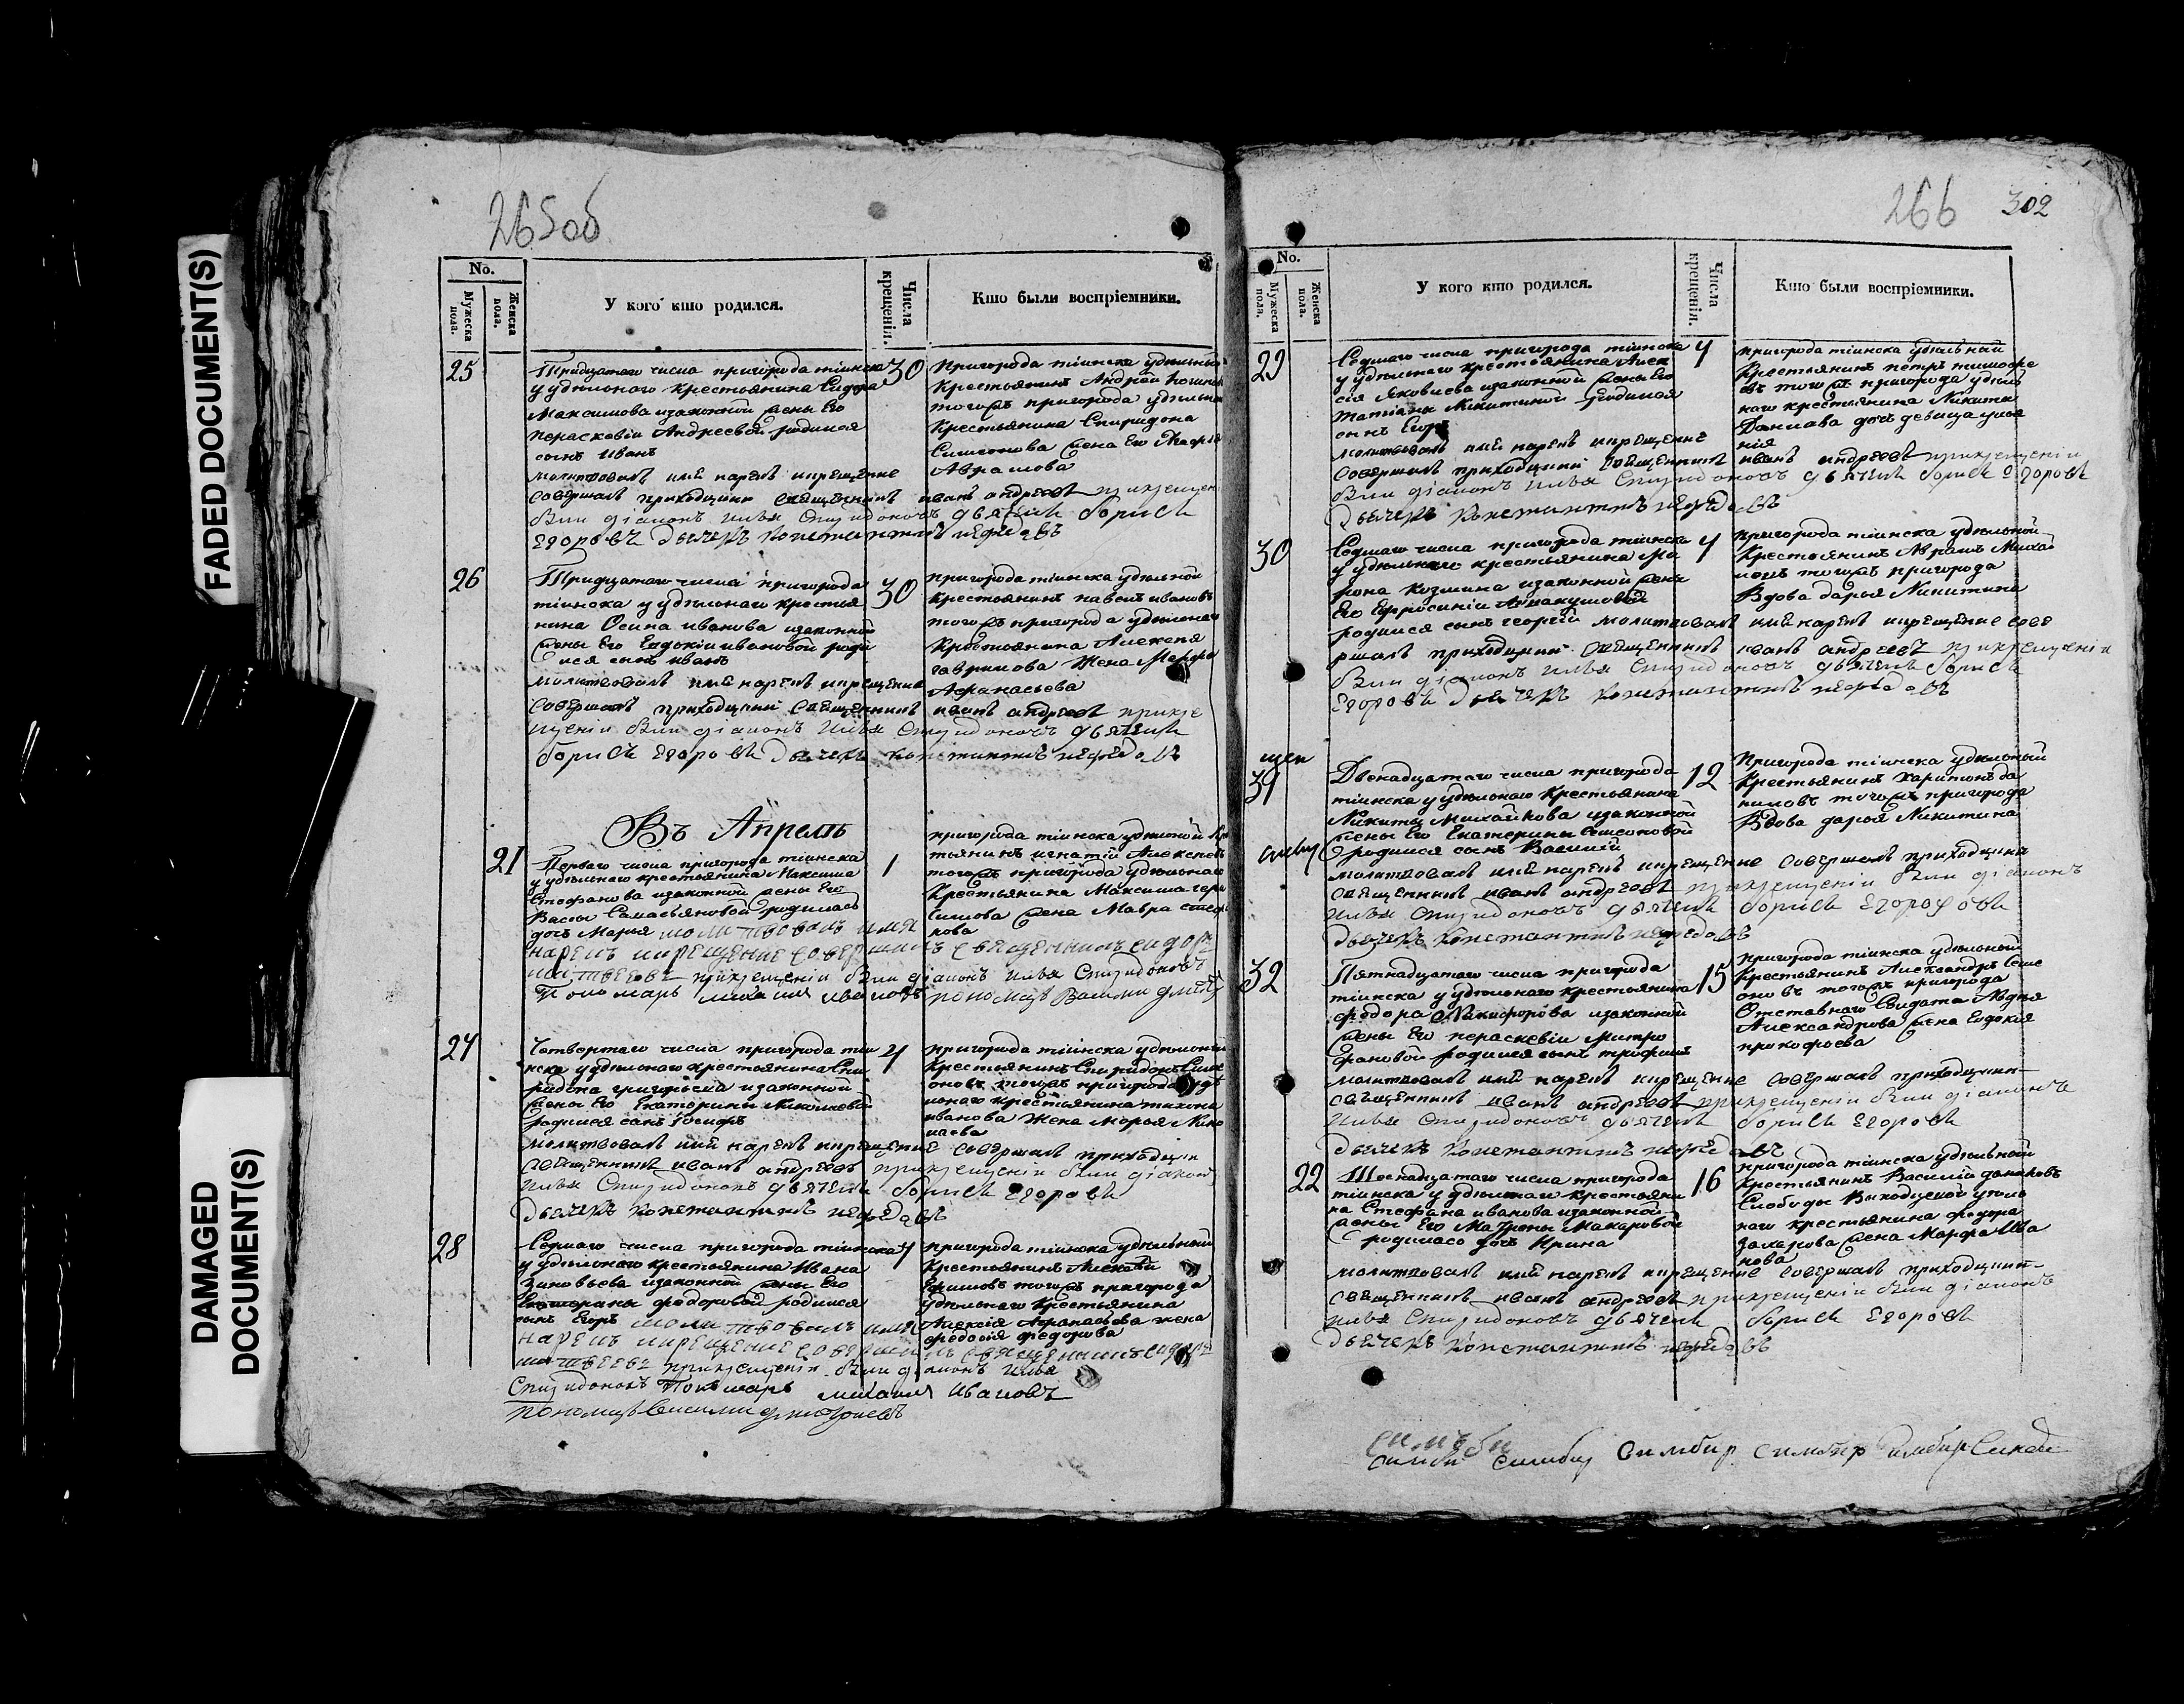 FADED DOCUMENT(S)
DAMAGED
DOCUMENT(S)
265об
No.
Мужеска пола.
Женска пола.
У кого кто родился.
Числа крещенія.
Кто были воспріемники.
25
Тридцатаго числа пригорода тіинска
у удѣльнаго крестьянина
Максимова изаконной жены Его
пераскевіи Андреевой родился
сынъ иванъ
молитвовалъ имя нарекъ икрещение
совершалъ приходцкии священникъ иванъ андреевъ прикрещен
были діаконъ илья Спиридоновъ дьячекъ борисъ
Егоровъ дьячекъ константинъ
30
Пригорода тіинска удѣльный
крестьянинъ Андрей
тогожъ пригорода
Крестьянина Спиридона
Симеонова жена Его
Абрамова
26
Тридцатаго числа пригорода
тіинска у удѣльнаго крестья
нина Осипа иванова изаконной
жены Его Евдокіи ивановой роди
лся сынъ иванъ
молитвовалъ имя нарекъ икрещение
совершалъ приходцкии священникъ иванъ андреевъ прикре
щеніи были діаконъ илья Спиридоновъ дьячекъ
борисъ Егоровъ дьячекъ константинъ
30
пригорода тіинска удѣльной
крестьянинъ павелъ ивановъ
тогожъ пригорода удѣльнаго
Крестьянина Алексея
гаврилова Жена Марфа
Афанасьева
Въ Апрелѣ
21
Перваго числа пригорода тіинска
у удѣльнаго крестьянина Максима
Стефанова изаконной жены Его
Васы родилась
дочь Марья молитвовалъ имя
нарекъ икрещение совершалъ священникъ сидоръ
матвеевъ прикрещении были діаконъ илья Спиридоновъ
Пономарь михаилъ ивановъ пономарь Василии
1
пригорода тіинска удѣлной
тьянинъ игнатій Алексеевъ
тогожъ пригорода удѣльнаго
Крестьянина Максима
жена Мавра
нова
27
Четвертаго числа пригорода тіи
нска у удѣльнаго крестьянина Спи
ридона григорьева изаконной
жены Его Екатерины Николаевой
родился сынъ Іосифъ
молитвовалъ имя нарекъ икрещение совершалъ приходцки
священникъ иванъ андреевъ прикрещеніи были діаконъ
илья Спиридоновъ дьячекъ борисъ Егоровъ
дьячекъ константинъ
4
пригорода тіинска удѣльный
Крестьянинъ Спиридонъ Симе
оновъ тогожъ пригорода удѣ
льнаго крестьянина тихона
иванова Жена Марья Нико
лаева
28
Седмаго числа пригорода тіинска
у удѣльнаго крестьянина Ивана
Зиновьева изаконной жены Его
Екатерины федоровой родился
сынъ Егоръ молитвовалъ имя
нарекъ икрещение совершалъ священникъ сидоръ
матвеевъ прикрещеніи были діаконъ илья
Спиридоновъ Пономарь михаилъ Ивановъ
пономарь Василии дмитриевъ
7
пригорода тіинска удѣльный
Крестьянинъ Алексей
Ефимовъ тогожъ пригорода
удѣльнаго крестьянина
Алексія Афанасьева жена
федосія федорова
266
302
No.
Мужеска пола.
Женска пола.
У кого кто родился.
Числа крещенія.
Кто были воспріемники.
29
Седмаго числа пригорода тіинска
у удѣльнаго крестьянина Алек
сія Яковлева изаконной жены Его
татіаны Никитиной родился
сынъ Егоръ
молитвовалъ имя нарекъ икрещение
совершалъ приходцкий священникъ иванъ андреевъ прикрещеніи
были діаконъ илья Спиридоновъ дьячекъ борисъ Егоровъ
дьячекъ константинъ
7
пригорода тіинска удѣльный
крестьянинъ петръ тимофее
въ тогожъ пригорода удѣль
наго крестьянина Никиты
Данилова дочь девица
30
Седмаго числа пригорода тіинска
у удѣльнаго крестьянина Ми
рона Козмина изаконной жены
Его Ефросиніи
родился сынъ георгій молитвовалъ имя нарекъ икрещение сове
ршалъ приходцкий священникъ иванъ андреевъ прикрещеніи
были діаконъ илья Спиридоновъ дьячекъ борисъ
Егоровъ дьячекъ константинъ
7
пригорода тіинска удѣльной
Крестьянинъ Абрамъ
тогожъ пригорода
Вдова дарья Никитина
31
Двенадцатаго числа пригорода
тіинска у удѣльнаго крестьянина
Никиты Михайлова изаконной
жены Его Екатерины Симеоновой
родился сынъ Василій
молитвовалъ имя нарекъ икрещение совершалъ приходцкии
священникъ иванъ андреевъ прикрещеніи были діаконъ
илья Спиридоновъ дьячекъ борисъ
дьячекъ константинъ
12
Пригорода тіинска удѣльный
Крестьянинъ харитонъ да
ниловъ тогожъ пригорода
Вдова дарья Никитина
32
Пятнадцатаго числа пригорода
тіинска у удѣльнаго крестьянина
федора Никифорова изаконной
жены Его пераскевіи Митро
фановой родился сынъ трофимъ
молитвовалъ имя нарекъ икрещение совершалъ приходцкии
священникъ иванъ андреевъ прикрещеніи были діаконъ
илья Спиридоновъ дьячекъ борисъ Егоровъ
дьячекъ константинъ
15
пригорода тіинска удѣльной
Крестьянинъ Александръ Симе
оновъ тогожъ пригорода
Отставнаго Солдата
Александрова жена Евдокия
прокофьева
22
Шеснадцатаго числа пригорода
тіинска у удѣльнаго крестьяни
на Стефана иванова изаконной
жены Его Матроны Макаровой
родилась дочь Ирина
молитвовалъ имя нарекъ икрещение совершалъ приходцкии
священникъ иванъ андреевъ прикрещеніи были діаконъ
илья Спиридоновъ дьячекъ борисъ Егоровъ
дьячекъ константинъ
16
пригорода тіинска удѣльной
крестьянинъ Василій
Слободы
наго крестьянина федора
Захарова жена Марфа Ива
нова
симби симбир Симбир симбир